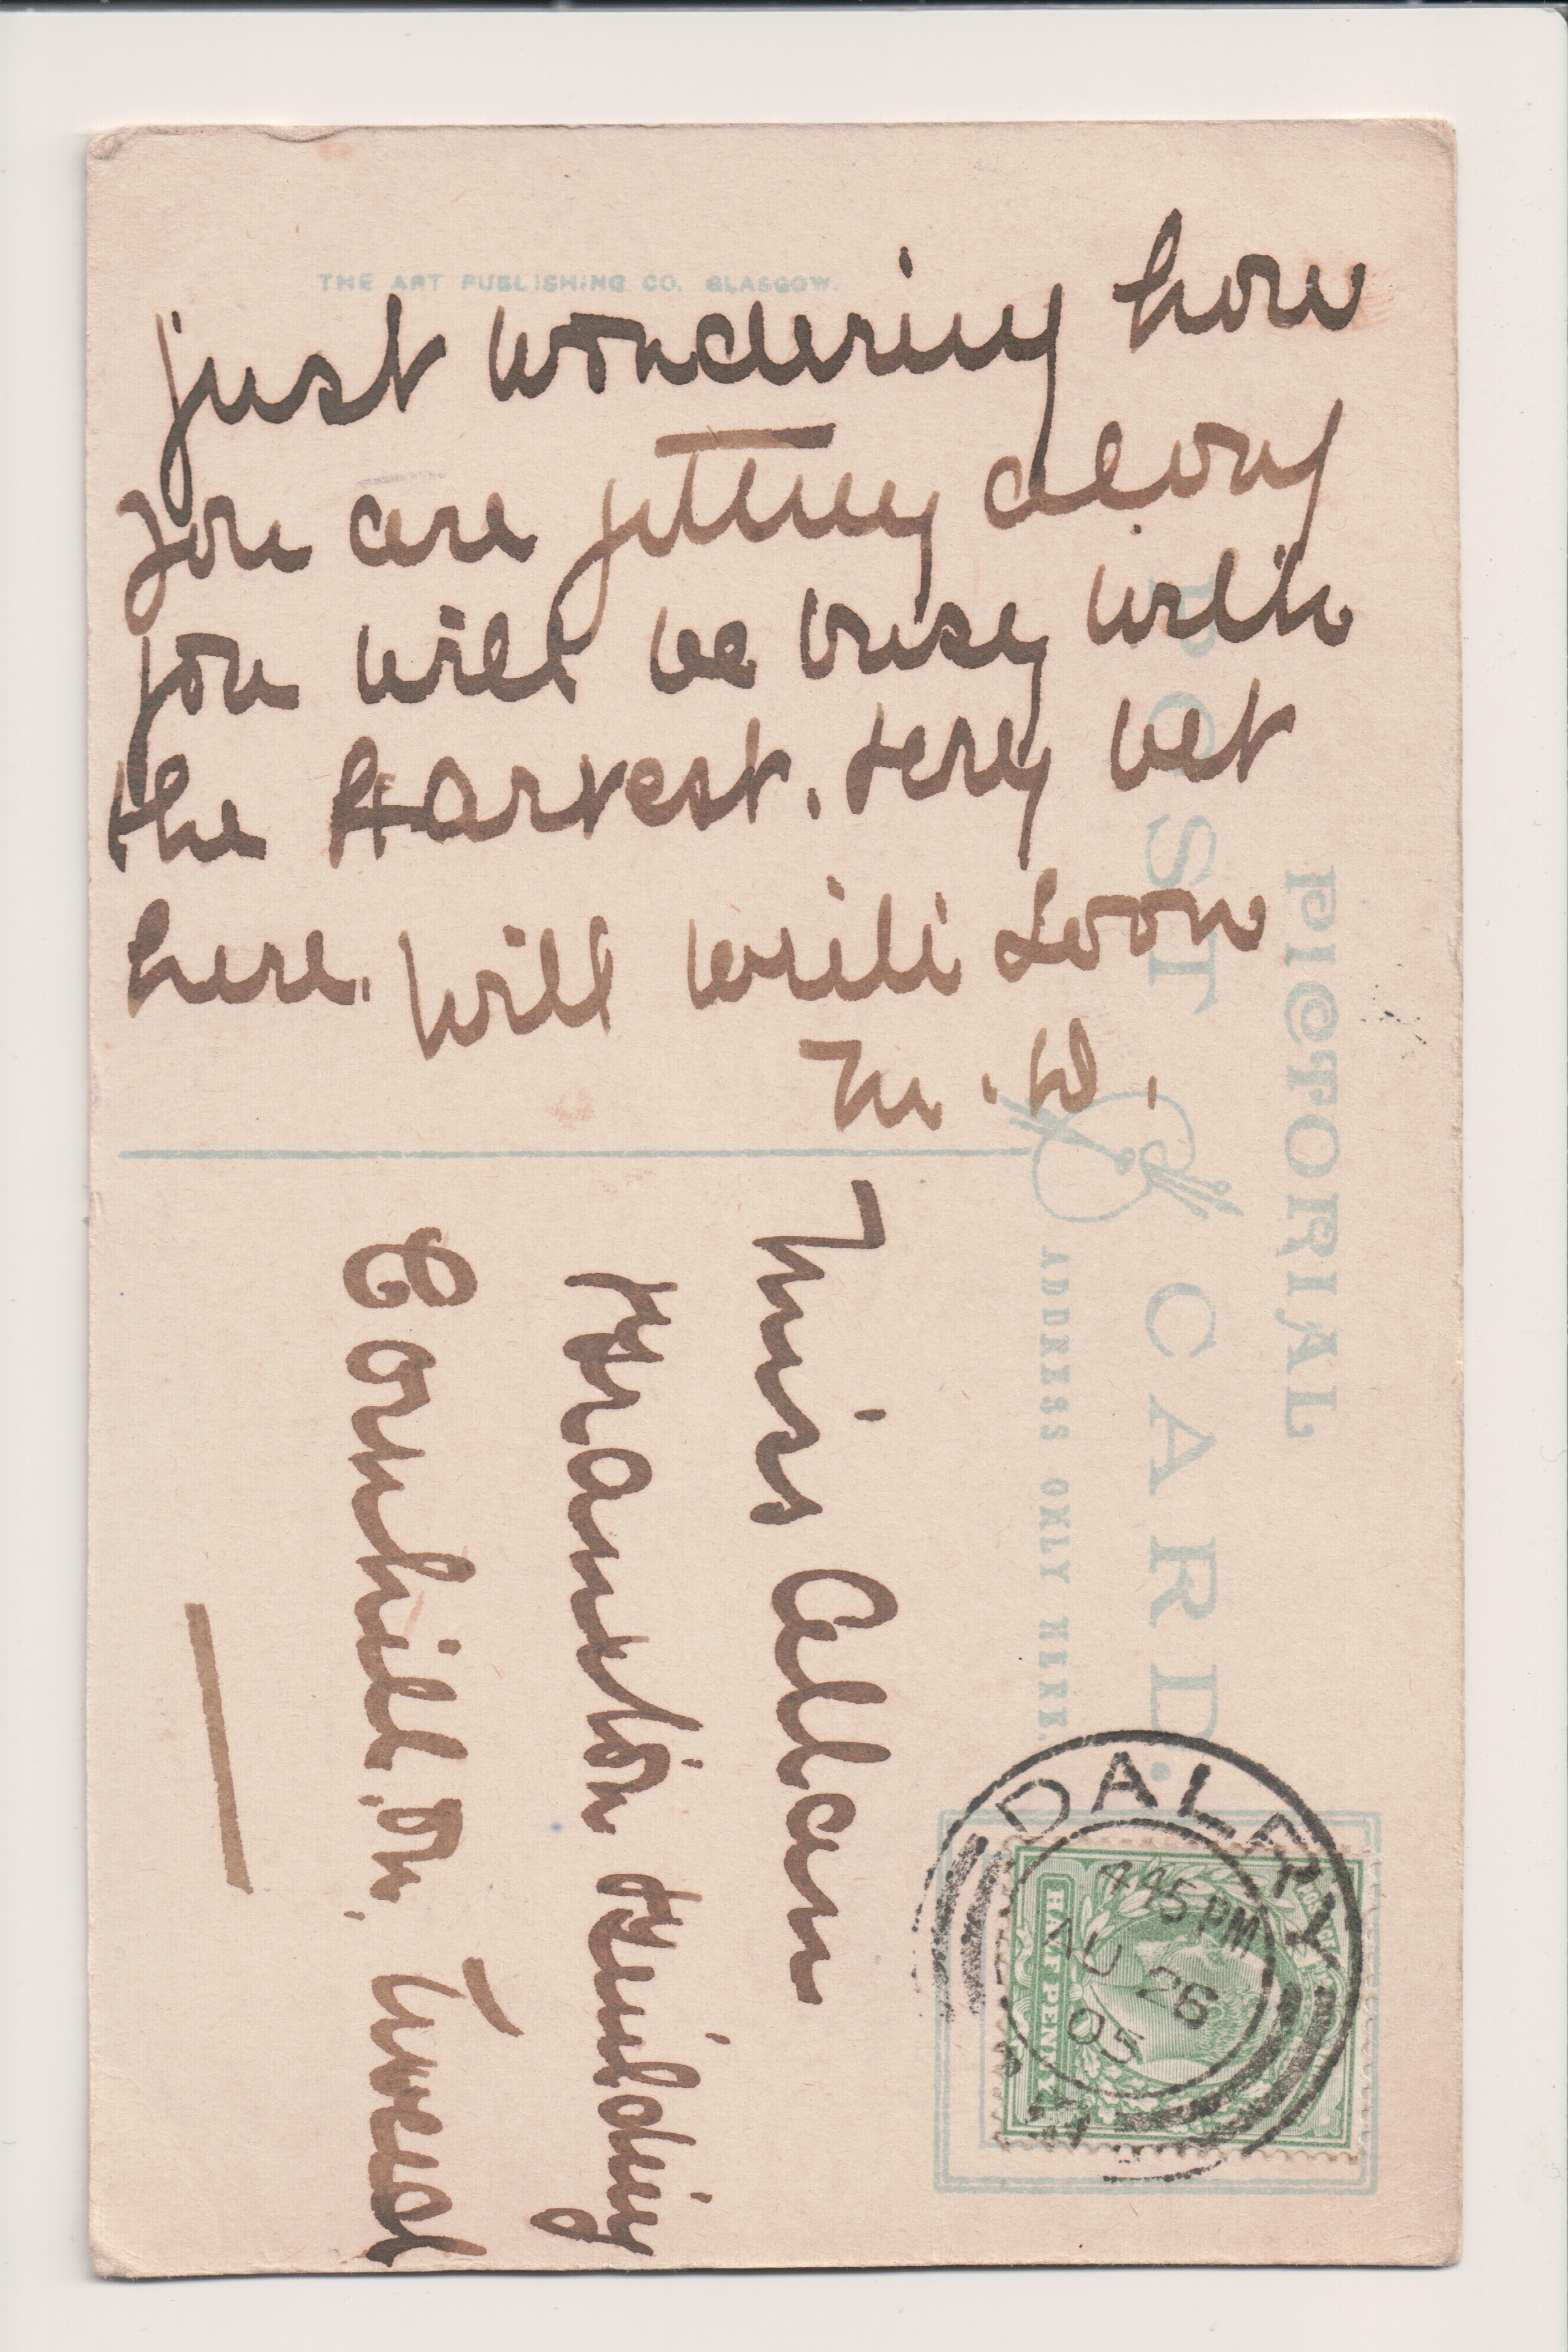 THE ART PUBLISHING CO. GLASGOW.
just wondering how
you are getting along
you will be busy with
the Harvest. very wet
here. Will write soon
M. W.
PICTORIAL
POST CARD.
ADDRESS ONLY HERE.
Miss Allan
Branxton Building
Cornhill. on. Tweed
DALRY
4 45 PM
AU 26
05
HALFPENNY